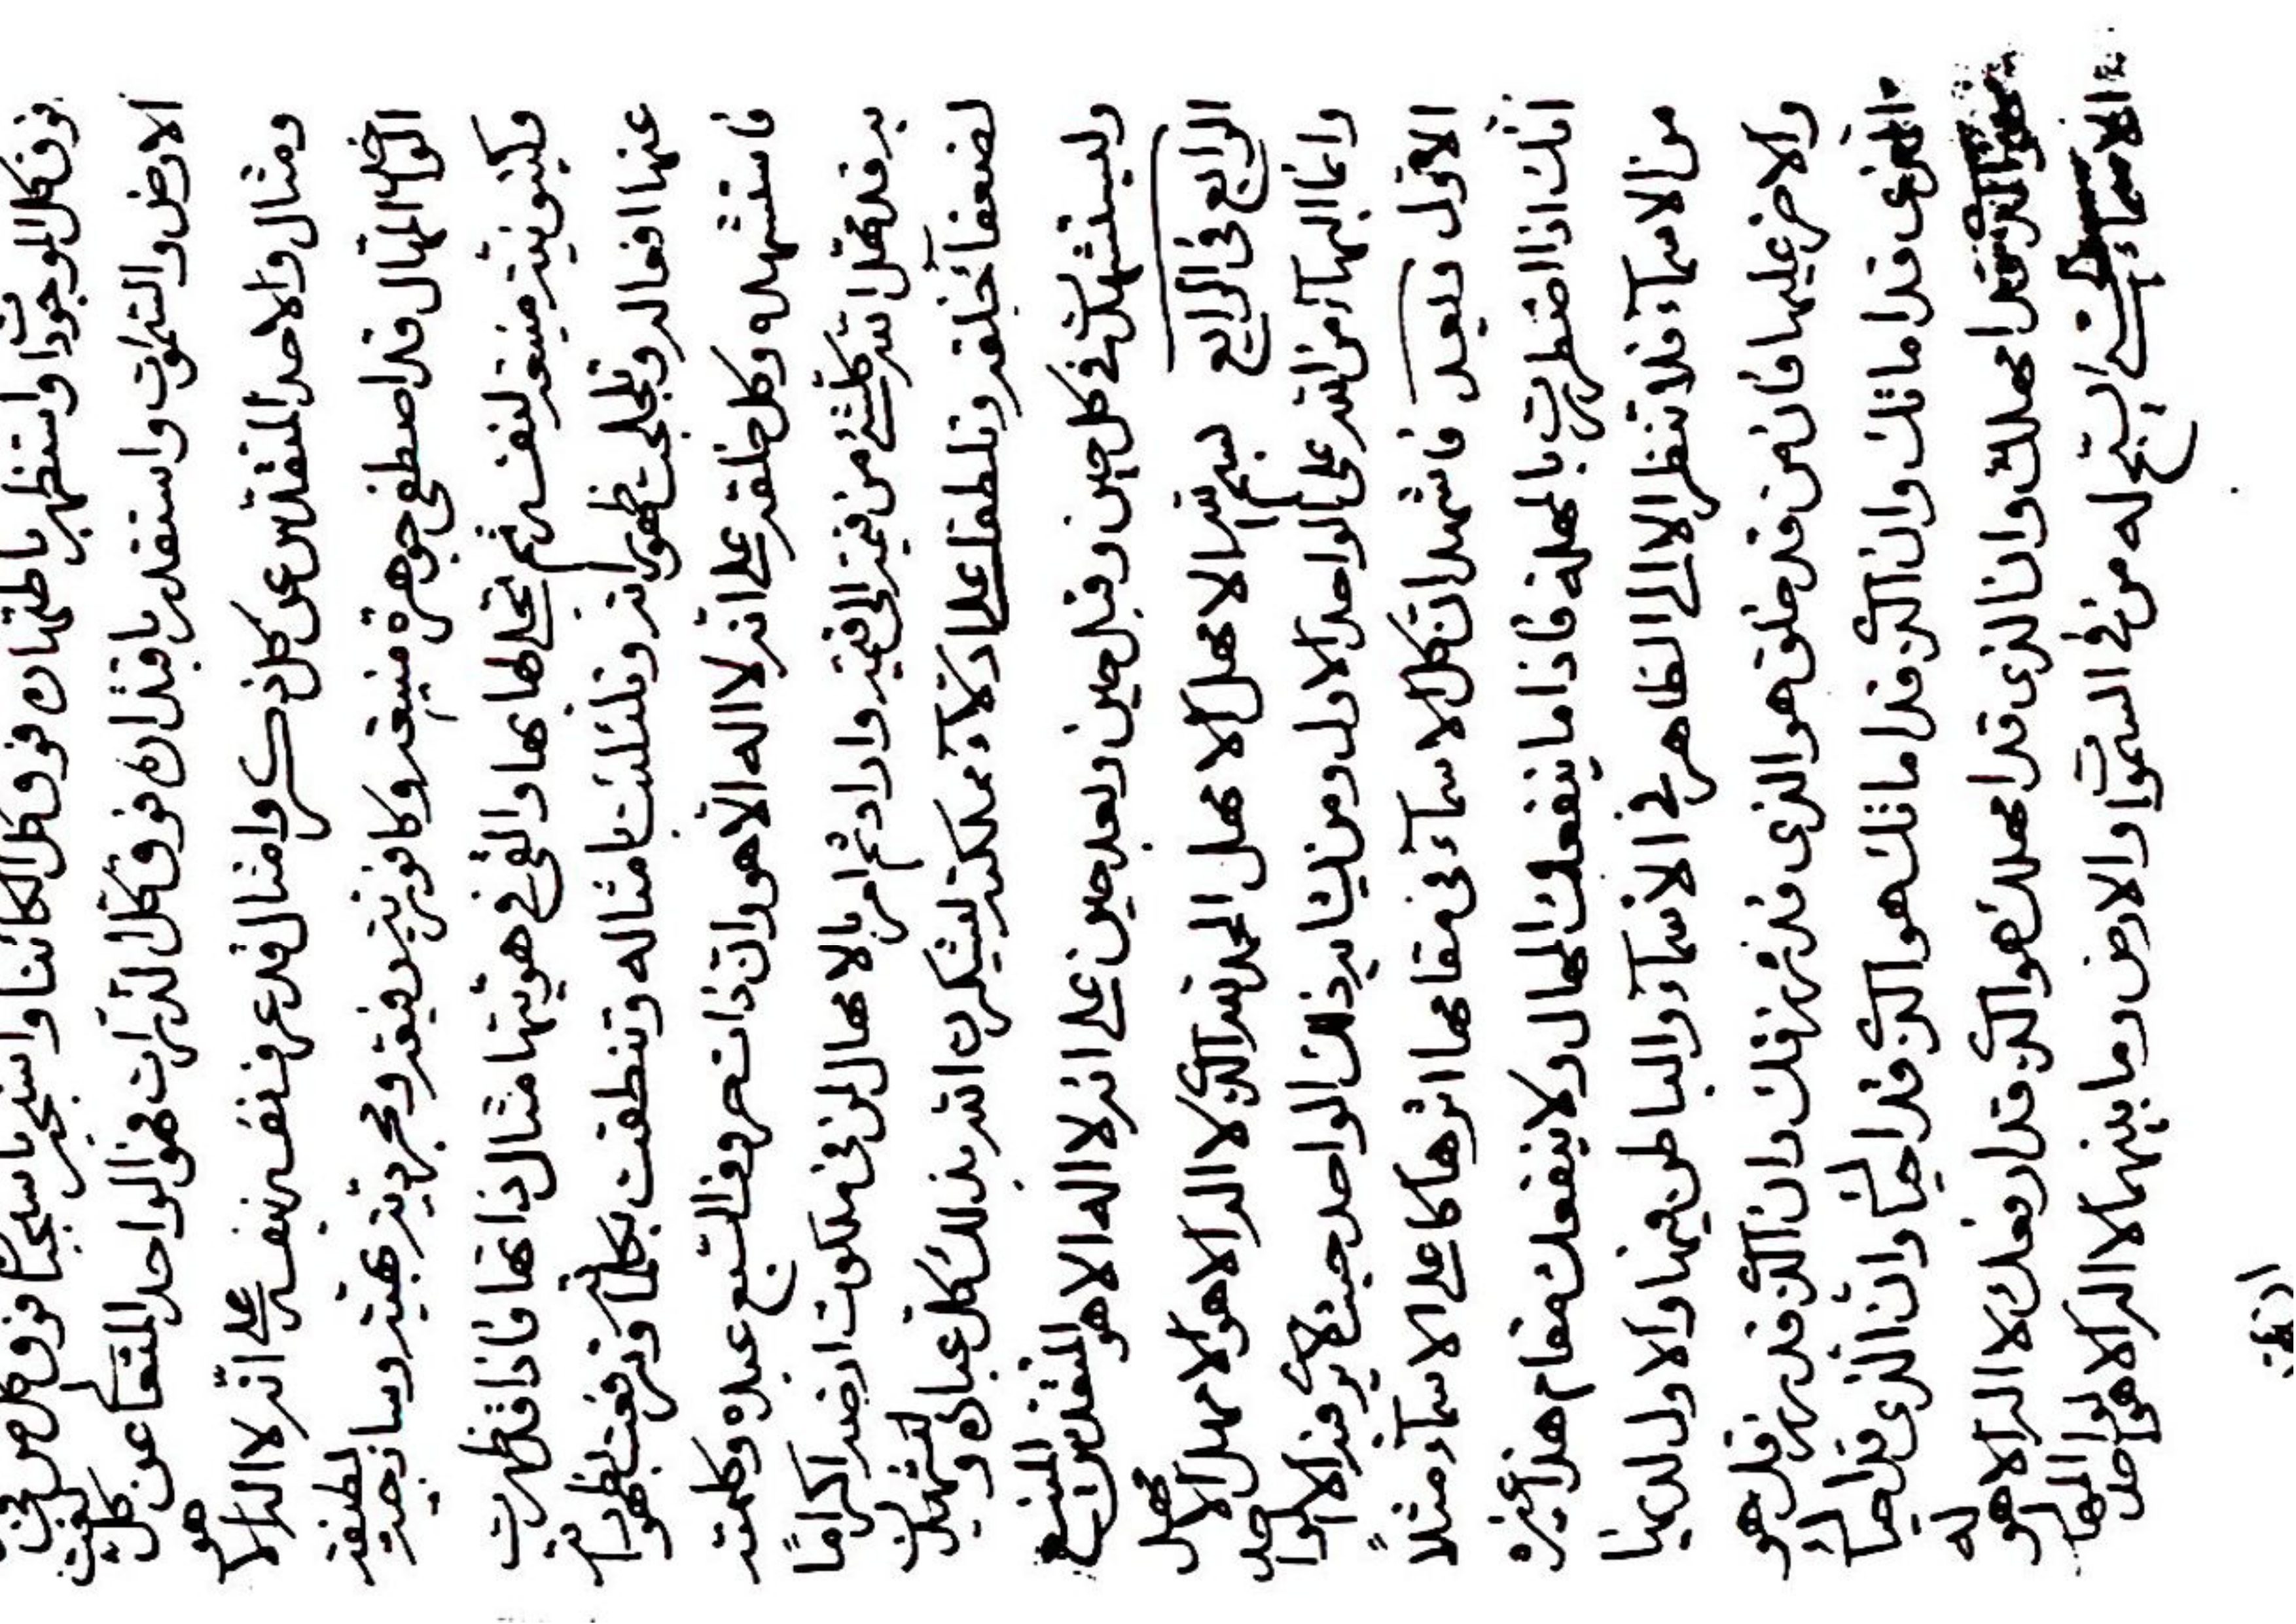 فوق كل الموجودات واستظهر باظتهار فوق كل الكائنات واستجبر باستجبار فوق كل من في
الارض والسموات واستقدر باقتدار فوق كل الذرات فهو الواحد المتعال عن كل نعت
ومثال والاحد المتقدس عن كل ذكر وامثال قد عرف نفسه نفسه على انه لا اله الا هو
الواحد المهال قد اصطفى جوهرة منيعة وكافورية رفيعة ومجردية بهية وساذجية لطيفة
وكينونية منيعة لنفسه ثم تجلى لها بها والقى في هويتها مثال ذاتها فاذا قد ظهرت
عنها افعاله وتجلجت ظهوراته وتلئلئت بامثاله وتنطقت بكلماته وترفعت بظهوراته
فاستشهده وكل خلقه على انه لا اله الا هو وان ذات حروف السبع عبده وكلمته
به قد مهل الله كلشيء من قمية الى قمية واراد ثم امر بالامهال لمن في ملكوت ارضه اكراما
لضعفاء خلقه وتلطفا على ادلاء مملكته ليشكرن الله بذلك كل عباده
وليستشهدنه في كل حين وقبل حين وبعد حين على انه لا اله الا هو المتقدس المنيع
الرابع في الرابع بسم الله الامهل الامهل الحمد لله الذي لا اله الا هو الامهل الامهل
وانما البهاء من الله على الواحد الاول ومن يشابه ذلك الواحد حيث لا يرى فيه الا الواحد
الاول وبعد فاشهد ان كل الاسماء في مقامها اثرها كاعلى الاسماء مثلا
انك اذا اضطريت بالمهلة فاذا ما ينفعك المهال ولا ينفعك مقام هذا غيره
من الاسماء فلا تنظر الا الى الظاهر في الاسماء والباطن فيها والاول لديها
والاخر عليها فان من قد خلق هو الذي قد رزقك وان الذي قد رزقك هو
الذي قد اماتك وان الذي قد اماتك هو الذي قد احياك وان الذي قد احياك
هو الذي قد امهلك وان الذي قد امهلك هو الذي قد رفعك لا اله الا هو له
الاسماء الحسنى يسبح له من في السموات والارض وما بينهما لا اله الا هو الواحد المهال